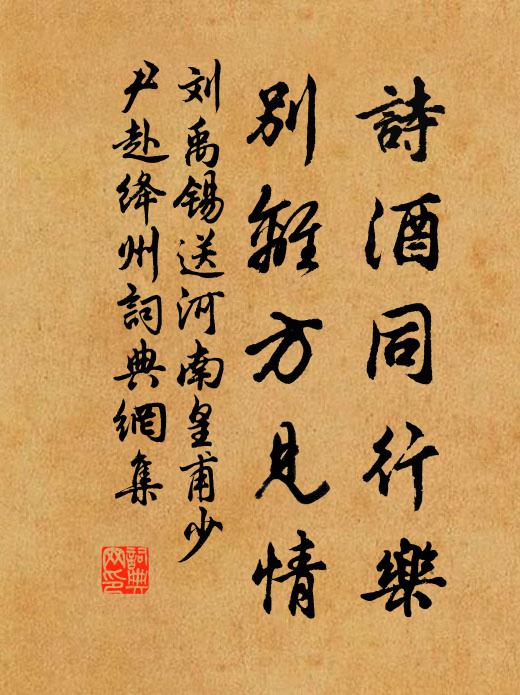 詩酒同行樂
別離方見情
刘禹锡送河南皇甫少
尹赴绛州詞典網集
詞典網印